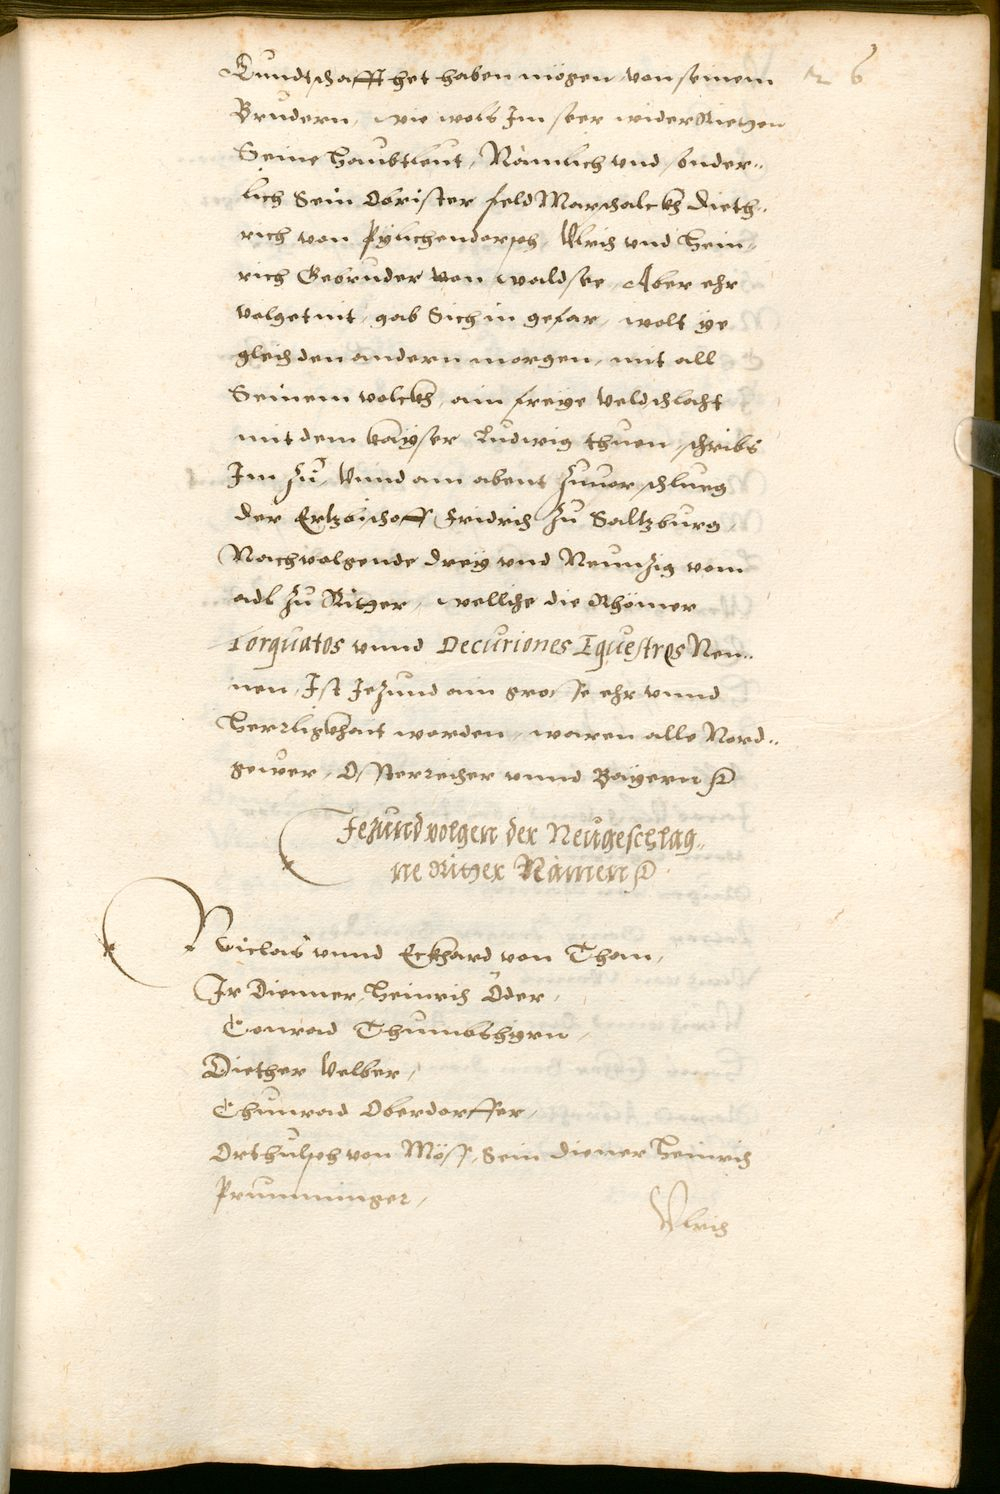 6
Kundtschafft het haben mögen von seinem
Brudern, wie wols Im seer widerRietgen
Seine Haubtleut, Nämlich vnd sonder„
lich Sein Obrister feldMarschalckh Dieth„
rich von Pylichendorph, Vlrich vnd Hein„
rich Gebruder von waldsee, Aber ehr
volget nit, gab Sich in gefar, wolt ye
gleich den andern morgen, mit all
Seinem volckh, ain freye Veldschlacht
mit dem Kayser Ludwig thuen, schribs
Im zu, Vnnd am abent zuuor schlueg
der Ertzbischoff Fridrich zu Saltzburg
Nachvolgende drey vnd Neunzig vom
adl zu Ritter, wellche die Rhömer
Torquatos vnnd Decuriones Equestres Nen„
nen, Ist Jezund ain grosse ehr vnnd
Herrligkhait worden, waren alle Nord„
gewer, Osterreicher vnnd Bayern
Jezund volgen der Neugeschlag„
ne Ritter Namen
Niclas vnnd Eckhard von Than,
Ir Dienner, Heinrich Öder,
Conrad Thumbshyrn,
Diether Velber,
Chunrad Oberdorffer,
Orthulph von Möss, Sein diener Heinrich
Prumminger,
Vlrich